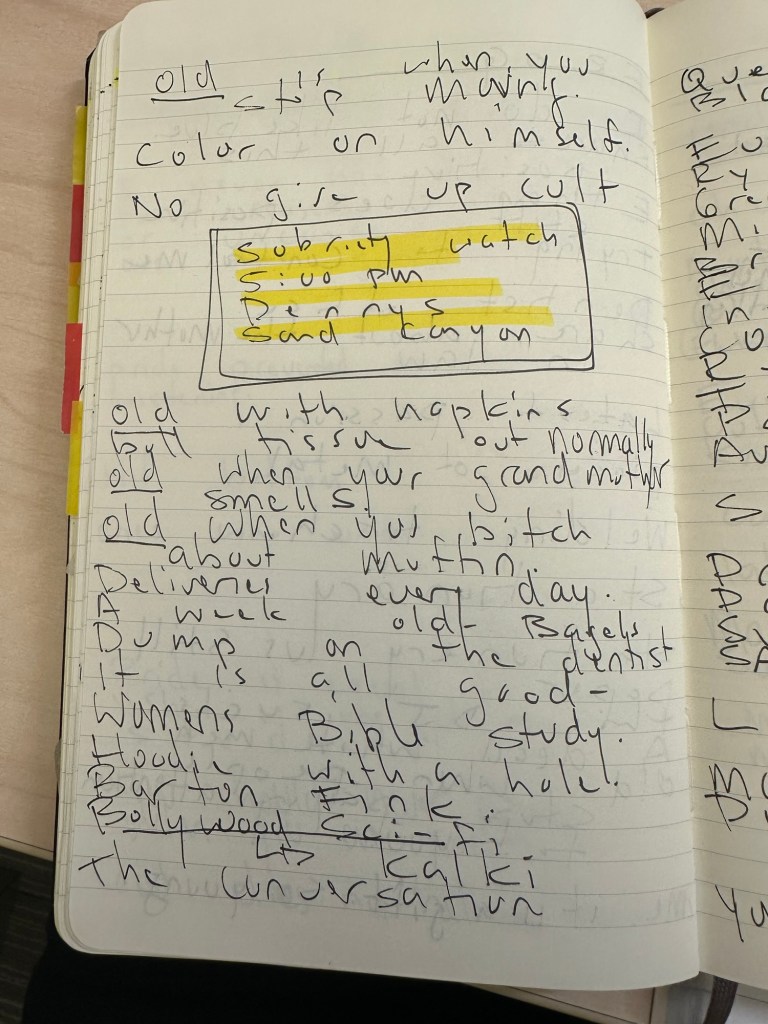 old is when you
stop moving.
Color on himself.
No give up cult
Subriety watch
5:00 pm
Dennys
Sand Canyon
old with napkins
butt tissue out normally
old when your grandmother
smells.
old when you bitch
about
Deliveries every day.
A week old- Bagels
Dump on the dentist
It is all good-
Womens Bible study.
Hoodie with a hole.
Barton Fink.
Bollywood Sci-fi
↳ Kalki
The Conversation